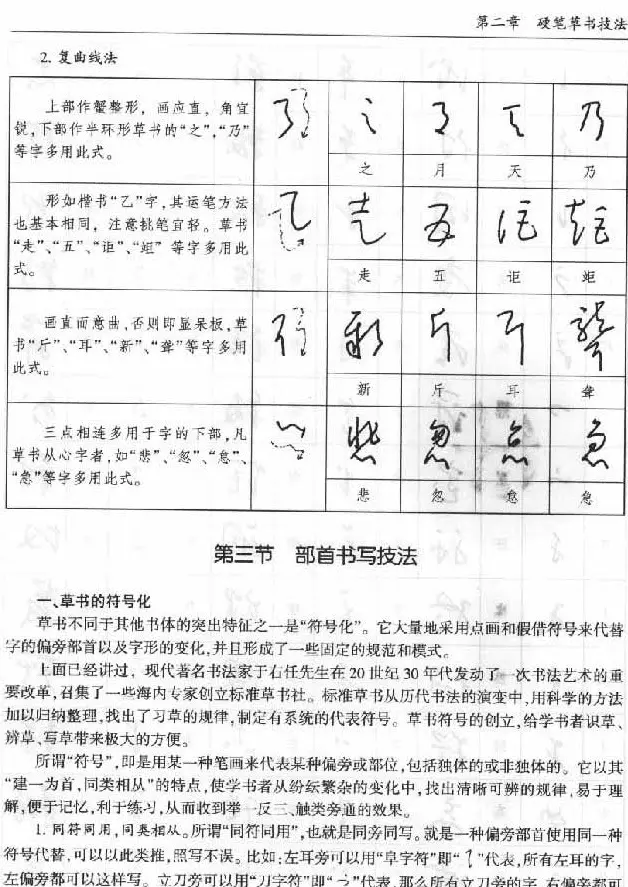 第二章 硬笔草书技法
2. 复曲线法
上部作蟹螯形，画应直，角宜
锐，下部作半环形草书的“之”，“乃”
等字多用此式。
之 月 天 乃
形如楷书“乙”字，其运笔方法
也基本相同，注意挑笔宜轻。草书
“走”、“五”、“讵”、“烜”等字多用此
式。
走 五 讵
画直而意曲，否则即显呆板，草
书“斤”、“耳”、“新”、“聋”等字多用
此式。
新 斤 耳 聋
三点相连多用于字的下部，凡
草书从心字者，如“悲”、“忽”、“怠”、
“急”等字多用此式。
悲 忽 怠 急
第三节 部首书写技法
一、草书的符号化
草书不同于其他书体的突出特征之一是“符号化”。它大量地采用点画和假借符号来代替
字的偏旁部首以及字形的变化，并且形成了一些固定的规范和模式。
上面已经讲过，现代著名书法家于右任先生在20世纪30年代发动了一次书法艺术的重
要改革，召集了一些海内专家创立标准草书社。标准草书从历代书法的演变中，用科学的方法
加以归纳整理，找出了习草的规律，制定有系统的代表符号。草书符号的创立，给学书者识草、
辨草、写草带来极大的方便。
所谓“符号”，即是用某一种笔画来代表某种偏旁或部位，包括独体的或非独体的。它以其
“建一为首，同类相从”的特点，使学书者从纷纭繁杂的变化中，找出清晰可辨的规律，易于理
解，便于记忆，利于练习，从而收到举一反三、触类旁通的效果。
1. 同符同用，同类相从。所谓“同符同用”，也就是同旁同写。就是一种偏旁部首使用同一种
符号代替，可以以此类推，照写不误。比如：左耳旁可以用“阜字符”即“”代表，所有左耳的字，
左偏旁都可以这样写。立刀旁可以用“刀字符”即“”代表，那么所有立刀旁的字，右偏旁都可